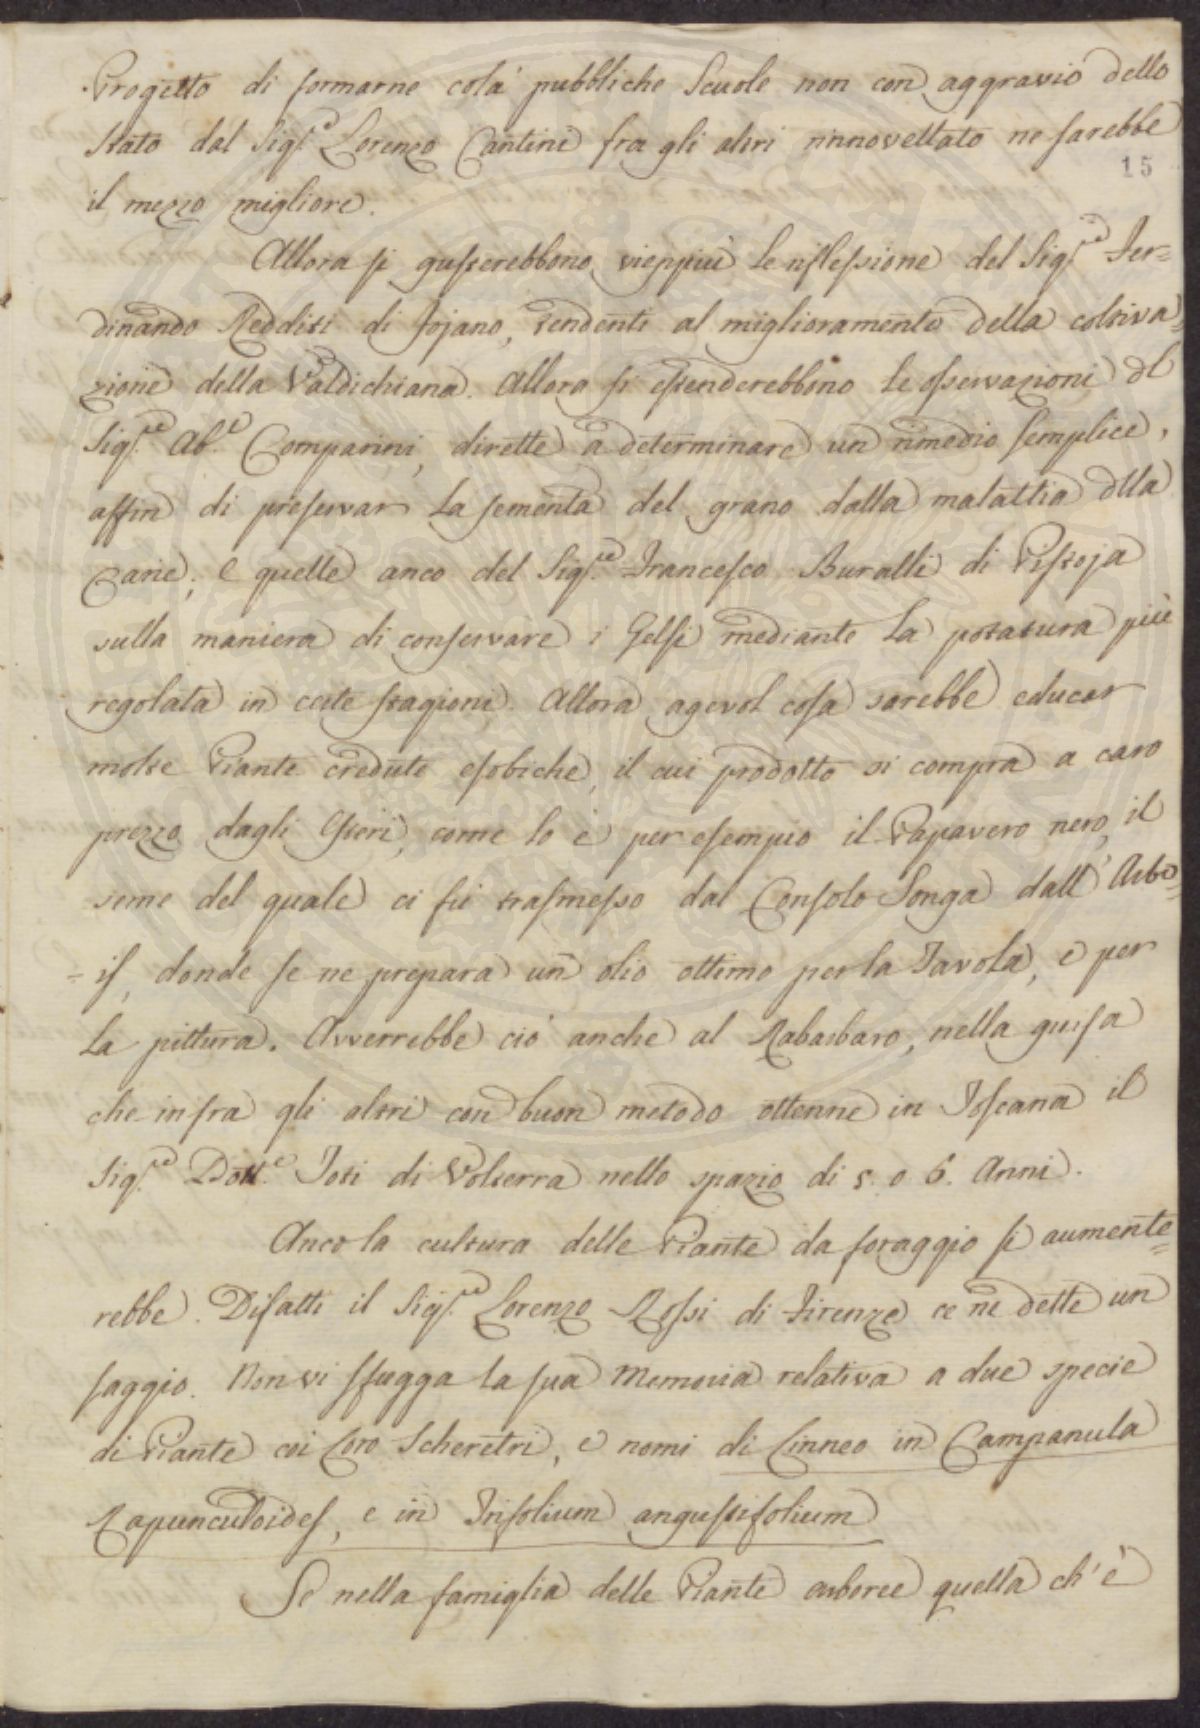 Progetto di formarne colà pubbliche Scuole non con aggravio dello
Stato dal Sig.re Lorenzo Cantini fra gli altri rinnovellato ne sarebbe
15
il mezzo migliore.
Allora si gusterebbono vieppiù le riflessione del Sig.re Fer=
dinando Redditi di Fojano, tendenti al miglioramento della coltiva=
zione della Valdichiana. Allora si estenderebbono le osservazioni dl
Sig.re Ab.e Comparini, dirette a determinare un rimedio semplice,
affin di preservar la sementa del grano dalla malattia dlla
Carie; e quelle anco del Sig.re Francesco Buralli di Pistoja
sulla maniera di conservare i Gelsi mediante la potatura più
regolata in certe stagioni. Allora agevol cosa sarebbe educar
molte Piante credute esotiche, il cui prodotto si compra a caro
prezzo dagli Esteri, come lo è per esempio il Papavero nero, il
seme del quale ci fù trasmesso dal Consolo Songa dall' Arto=
=is, donde se ne prepara un olio ottimo per la Tavola, e per
la pittura. Avverrebbe ciò anche al Rabarbaro, nella guisa
che infra gli altri con buon metodo ottenne in Toscana il
Sig.re Dott.e Tosi di Volterra nello spazio di 5. o 6. Anni.
Anco la cultura delle Piante da foraggio si aumente=
rebbe. Difatti il Sig.re Lorenzo Rossi di Firenze ce ne dette un
saggio. Non vi sfugga la sua Memoria relativa a due specie
di Piante coi loro Scheretri, e nomi di Linneo in Campanula
Rapunculoides, e in Trifolium angustifolium
Se nella famiglia delle Piante arboree quella ch'è